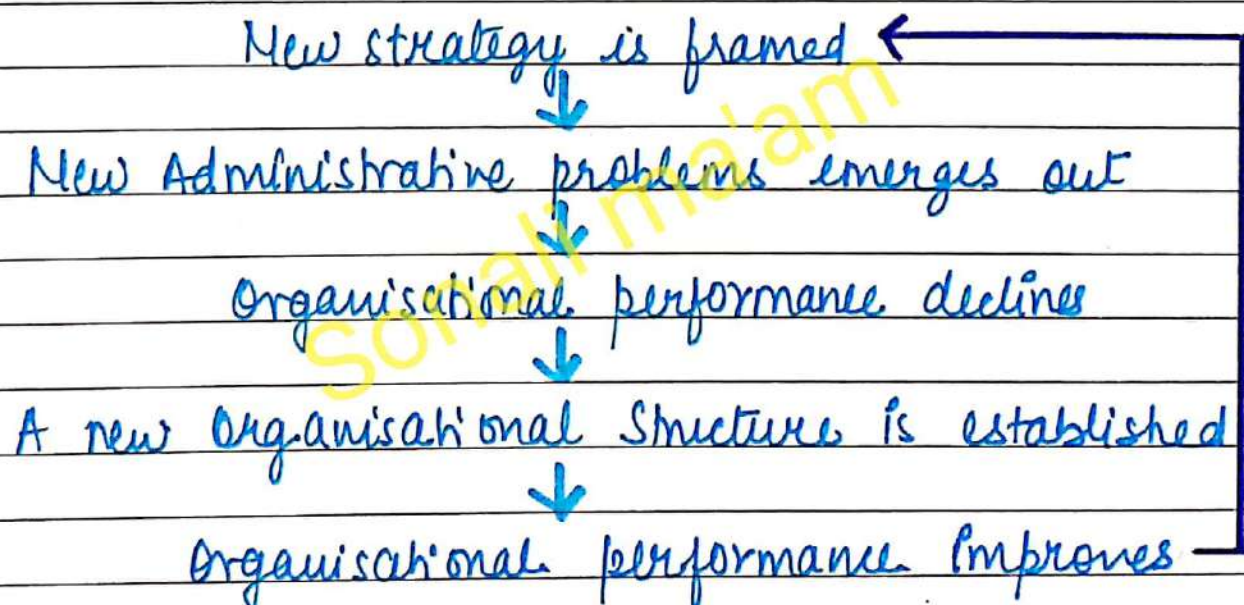 New strategy is framed
New Administrative problems emerges out
Sonali ma'am
Organisational performance declines
A new Organisational Structure is established
Organisational performance Improves